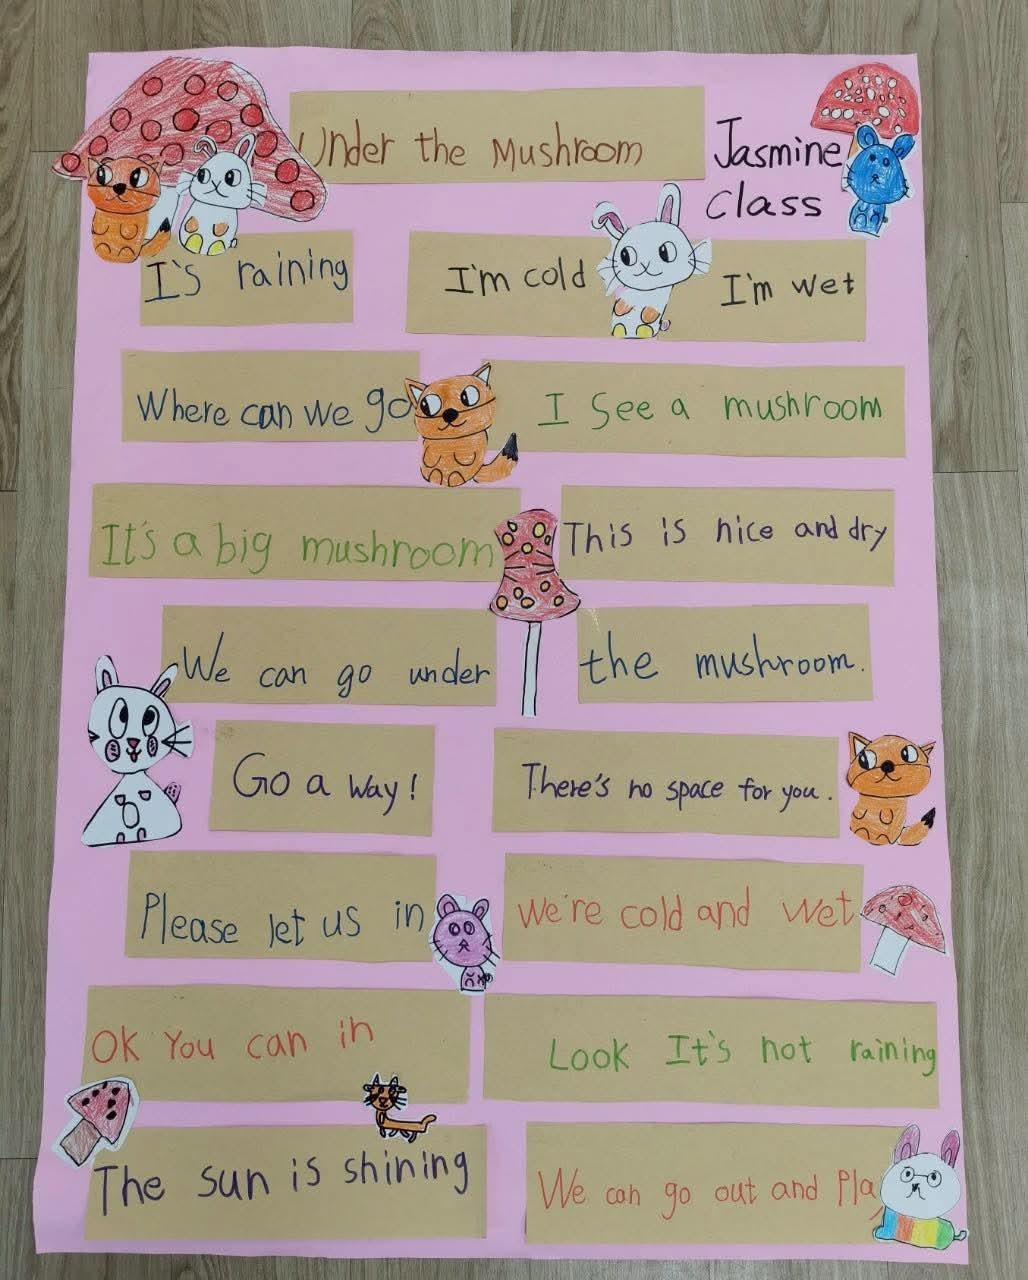 Under the Mushroom
Jasmine
class
I's raining
I'm cold
I'm wet
Where can we go
I See a mushroom
It's a big mushroom
This is nice and dry
We can go under
the mushroom.
Go a way!
There's no space for you.
Please let us in
We're cold and wet
OK You can in
Look It's not raining
The sun is shining
We can go out and Pla